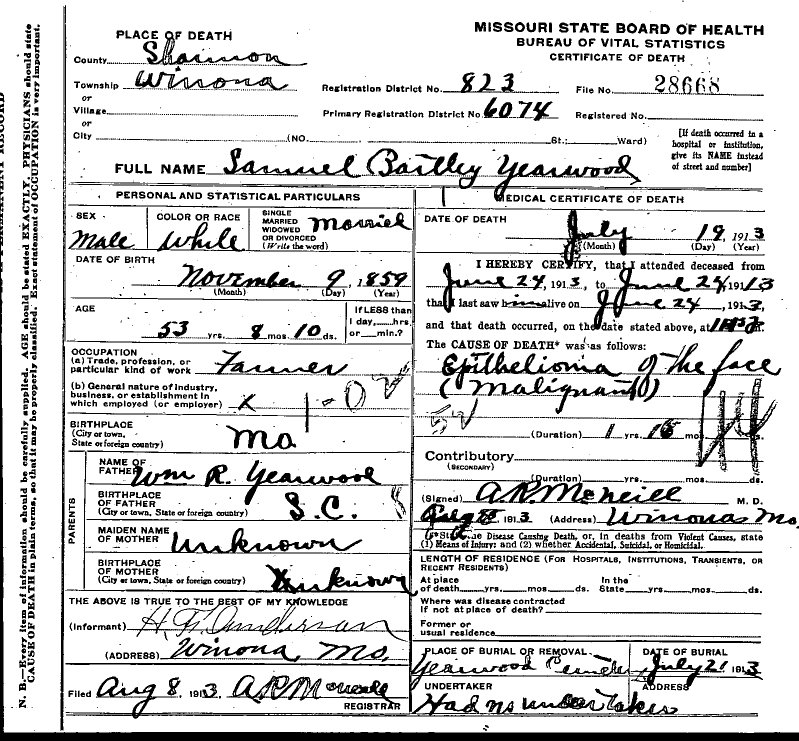 MISSOURI STATE BOARD OF HEALTH
BUREAU OF VITAL STATISTICS
CERTIFICATE OF DEATH
PLACE OF DEATH
County Shannon
Township Winona
or
Village
or
City (NO. St.; Ward)
Registration District No. 823 File No. 28668
Primary Registration District No. 6074 Registered No.
[If death occurred in a
hospital or institution,
give its NAME instead
of street and number]
FULL NAME Samuel Bartley Yearwood
PERSONAL AND STATISTICAL PARTICULARS
SEX
Male
COLOR OR RACE
White
SINGLE
MARRIED
WIDOWED
OR DIVORCED
(Write the word)
Married
DATE OF BIRTH
November 9, 1859
(Month) (Day) (Year)
AGE
53 yrs. 8 mos. 10 ds.
If LESS than
1 day,....hrs.
or....min.?
OCCUPATION
(a) Trade, profession, or
particular kind of work Farmer
(b) General nature of industry,
business, or establishment in
which employed (or employer) x
BIRTHPLACE
(City or town,
State or foreign country)
Mo
PARENTS
NAME OF
FATHER Wm R. Yearwood
BIRTHPLACE
OF FATHER
(City or town, State or foreign country) S.C.
MAIDEN NAME
OF MOTHER Unknown
BIRTHPLACE
OF MOTHER
(City or town, State or foreign country) Unknown
THE ABOVE IS TRUE TO THE BEST OF MY KNOWLEDGE
(Informant) H. F. Anderson
(ADDRESS) Winona Mo.
Filed Aug 8, 1913 A R McNeill
REGISTRAR
MEDICAL CERTIFICATE OF DEATH
DATE OF DEATH
July 19, 1913
(Month) (Day) (Year)
I HEREBY CERTIFY, that I attended deceased from
June 24, 1913, to June 24, 1913
that I last saw him alive on June 24, 1913,
and that death occurred, on the date stated above, at
The CAUSE OF DEATH* was as follows:
Epithelioma of the face
(Malignant)
(Duration) 1 yrs. mos. ds.
Contributory
(SECONDARY)
(Duration) yrs. mos. ds.
(Signed) A R McNeill M. D.
1913 (Address) Winona Mo.
*State the Disease Causing Death, or, in deaths from Violent Causes, state
(1) Means of Injury; and (2) whether Accidental, Suicidal, or Homicidal.
LENGTH OF RESIDENCE (For Hospitals, Institutions, Transients, or
Recent Residents)
At place
of death yrs. mos. ds.
In the
State yrs. mos. ds.
Where was disease contracted
if not at place of death?
Former or
usual residence
PLACE OF BURIAL OR REMOVAL
Yearwood
DATE OF BURIAL
July 21 1913
UNDERTAKER
Had no undertaker
ADDRESS
N. B.—Every item of information should be carefully supplied. AGE should be stated EXACTLY. PHYSICIANS should state
CAUSE OF DEATH in plain terms, so that it may be properly classified. Exact statement of OCCUPATION is very important.